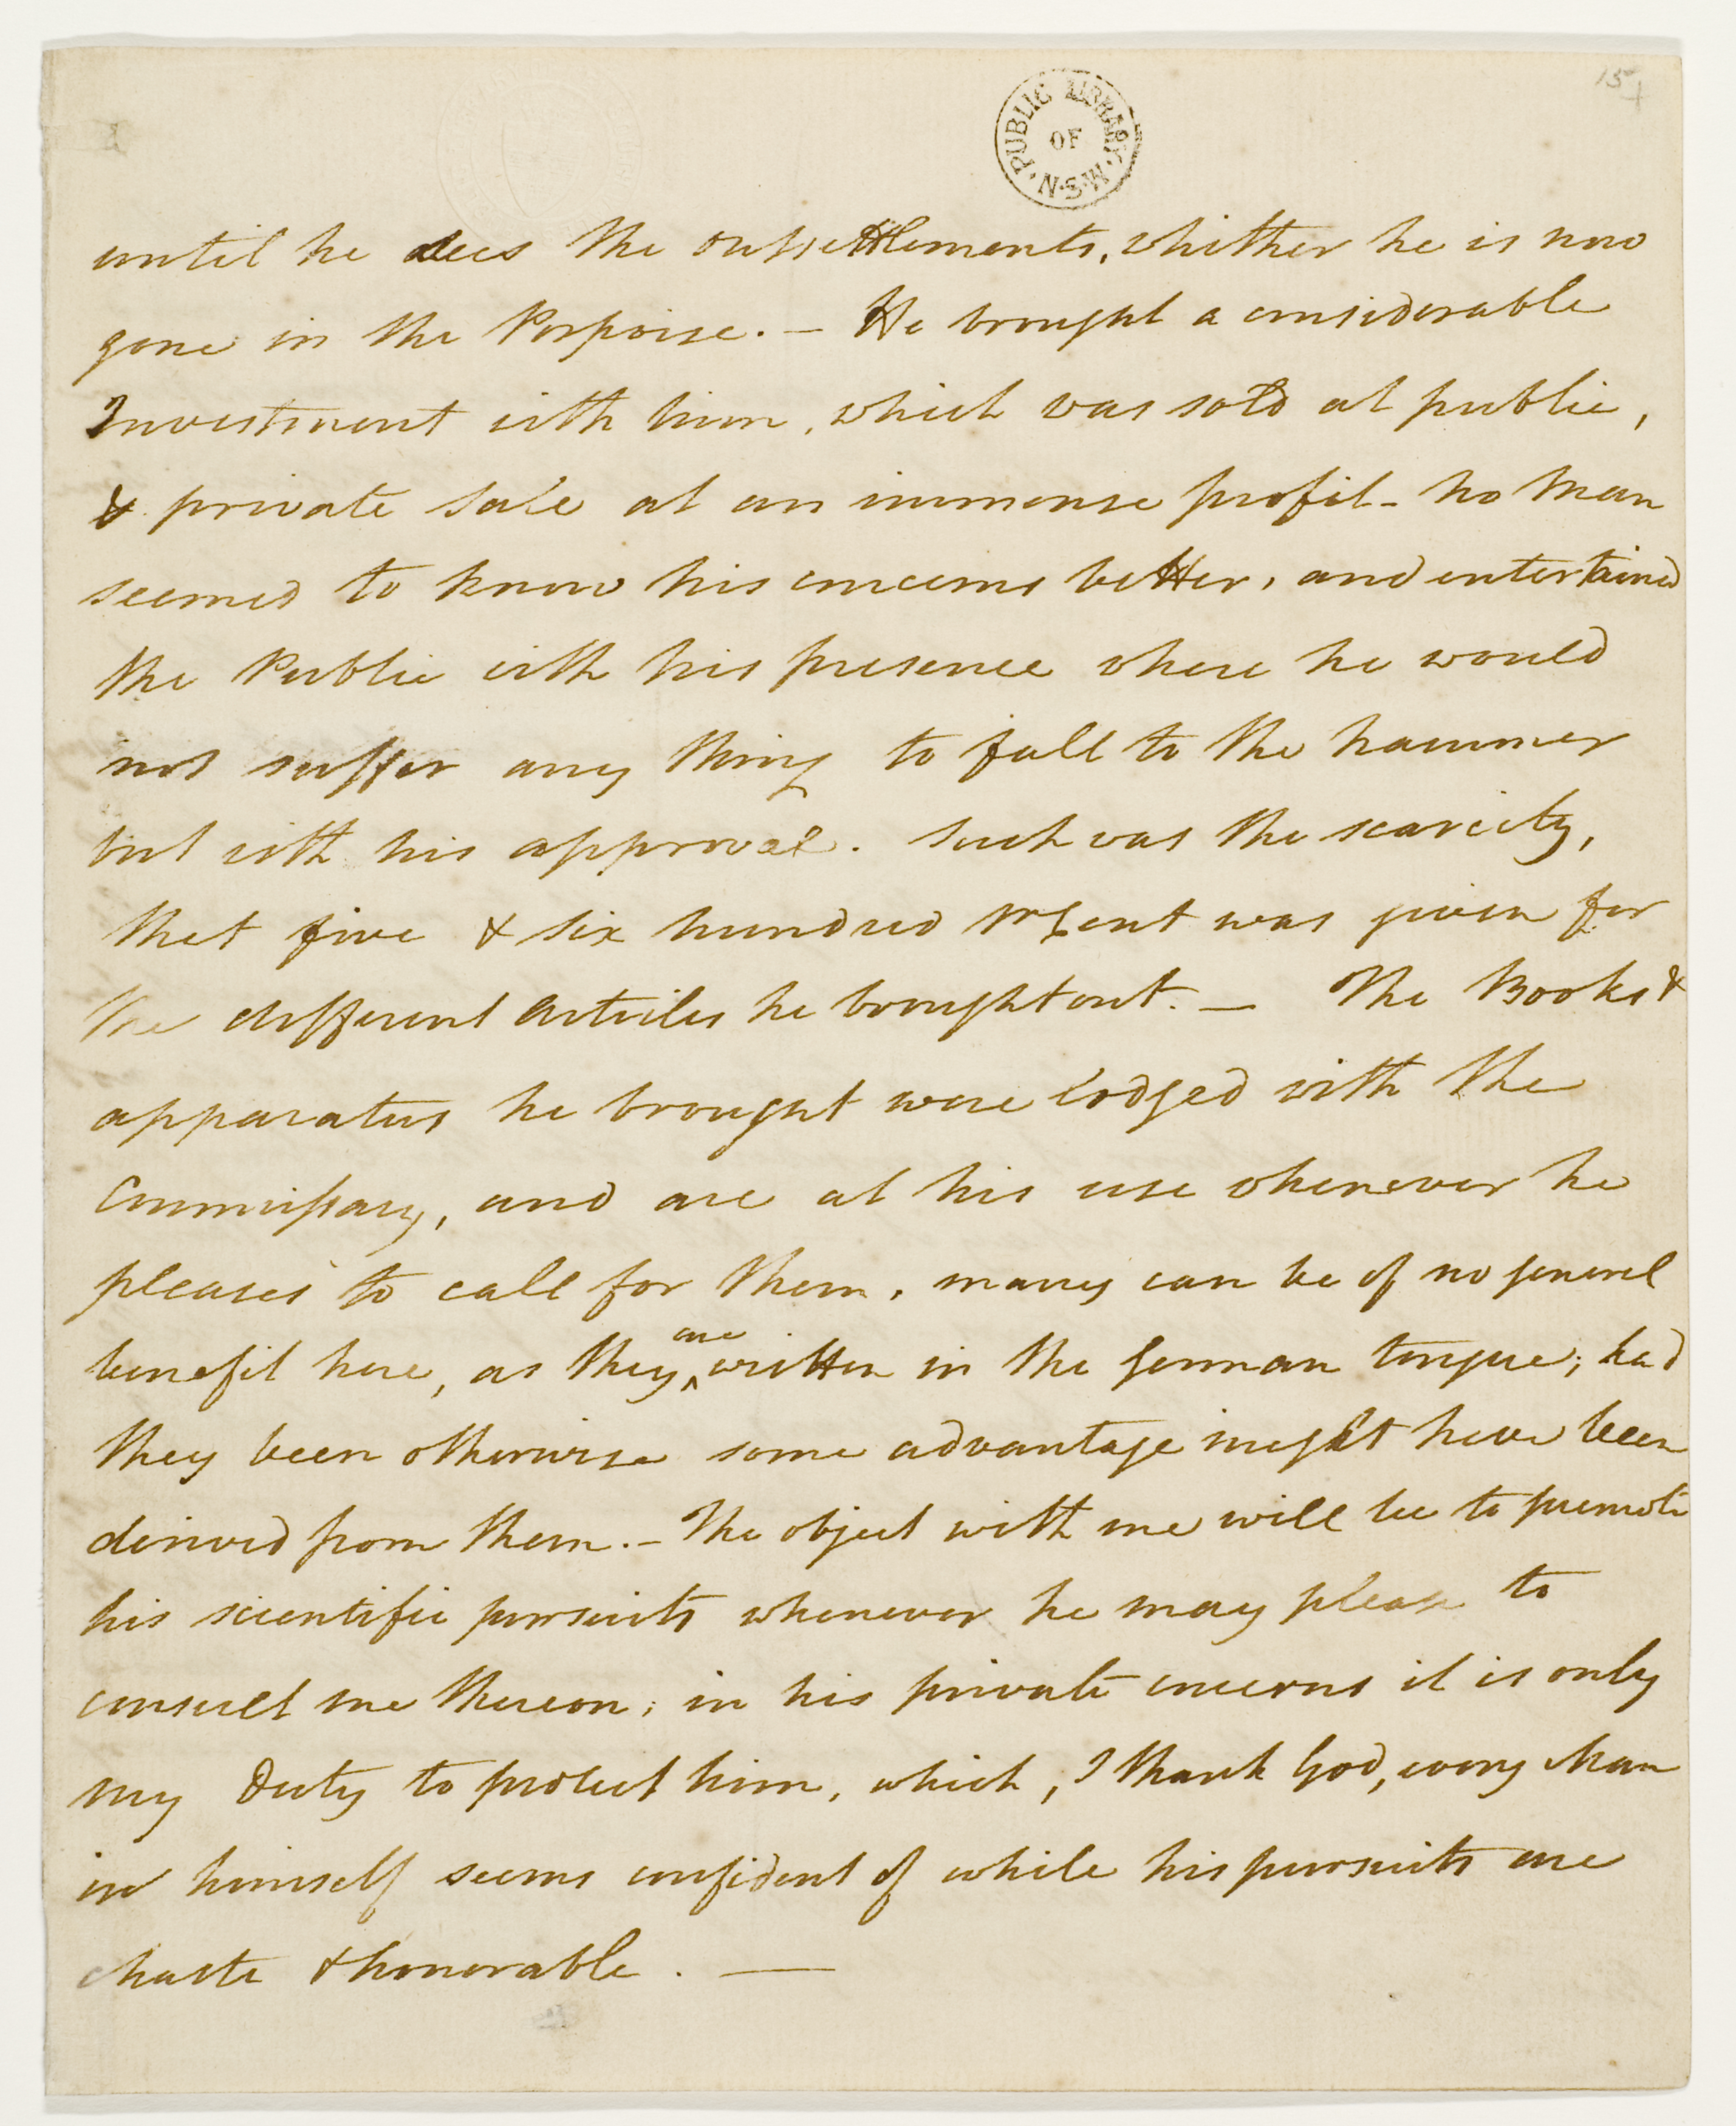 15
PUBLIC LIBRARY OF N.S.W.
until he sees the outsettlements, whither he is now
gone in the Porpoise. — He brought a considerable
Investment with him, which was sold at public,
& private sale at an immense profit - no Man
seemed to know his concerns better, and entertained
the Public with his presence where he would
not suffer any thing to fall to the hammer
but with his approval. Such was the scarcity,
that five & six hundred pr Cent was given for
the different Articles he brought out. — The Books &
apparatus he brought were lodged with the
Commissary, and are at his use whenever he
pleases to call for them, many can be of no general
benefit here, as they are written in the German tongue; had
they been otherwise some advantage might have been
derived from them. — The object with me will be to promote
his scientific pursuits whenever he may please to
consult me thereon; in his private concerns it is only
my Duty to protect him, which, I thank God, every Man
in himself seems confident of while his pursuits are
chaste & honorable. —